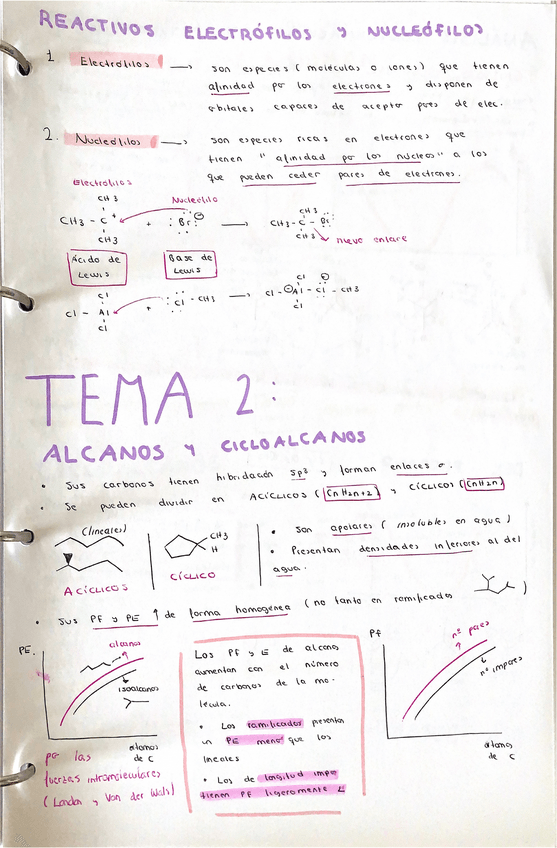 REACTIVOS ELECTRÓFILOS Y NUCLEÓFILOS
1 Electrófilos → son especies (moléculas o iones) que tienen
afinidad por los electrones y disponen de
orbitales capaces de aceptar pares de elec.
2. Nucleófilos → son especies ricas en electrones que
tienen "afinidad por los núcleos" a los
que pueden ceder pares de electrones.
Electrófilos
Nucleófilo
CH3
CH3
CH3 - C + + Br ⊖ → CH3 - C - Br
CH3
CH3
nuevo enlace
Ácido de Lewis
Base de Lewis
Cl
Cl
Cl - Al + Cl - CH3 → Cl - Al - Cl - CH3
Cl
Cl
TEMA 2:
ALCANOS Y CICLOALCANOS
• Sus carbonos tienen hibridación sp3 y forman enlaces σ.
• Se pueden dividir en ACÍCLICOS (CnH2n+2) y CÍCLICOS (CnH2n)
(lineales)
CH3
H
ACÍCLICOS
CÍCLICO
• Son apolares (insolubles en agua)
• Presentan densidades inferiores al del
agua.
• Sus PF y PE ↑ de forma homogenea (no tanto en ramificados )
PE.
alcanos
isoalcanos
átomos
de C
por las
fuerzas intramoleculares
(London y Van der Wals)
Los PF y E de alcano
aumentan con el número
de carbonos de la mo-
lécula.
• Los ramificados presentan
un PE menor que los
lineales
• Los de longitud impar
tienen PF ligeramente L
Pf
nº pares
nº impares
átomos
de C